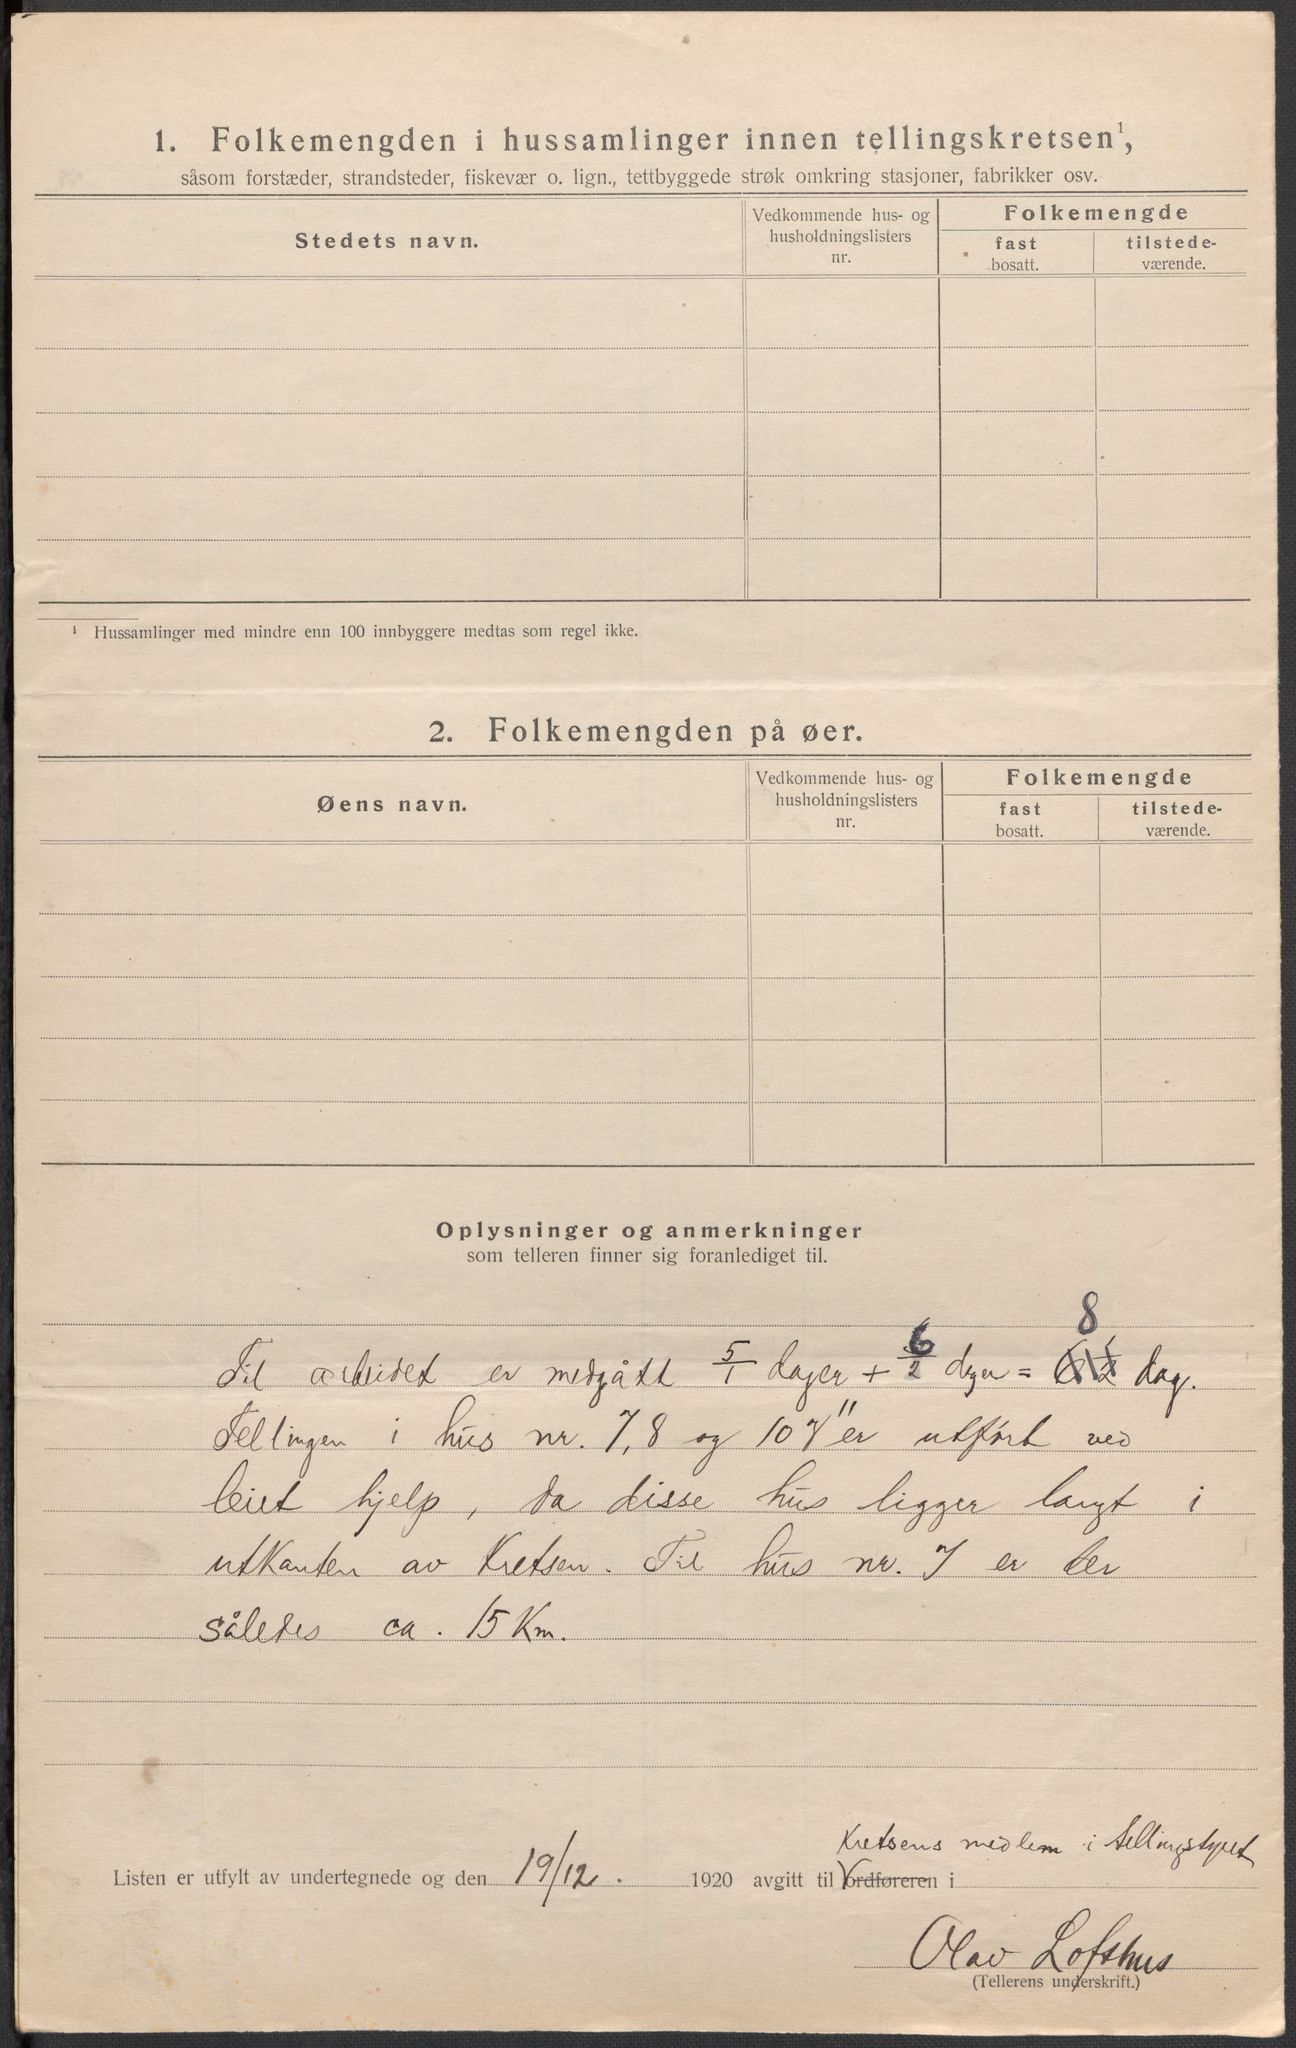 1. Folkemengden i hussamlinger innen tellingskretsen¹,
såsom forstæder, strandsteder, fiskevær o. lign., tettbyggede strøk omkring stasjoner, fabrikker osv.
Stedets navn.
Vedkommende hus- og
husholdningslisters
nr.
Folkemengde
fast
bosatt.
tilstede-
værende.
¹ Hussamlinger med mindre enn 100 innbyggere medtas som regel ikke.
2. Folkemengden på øer.
Øens navn.
Vedkommende hus- og
husholdningslisters
nr.
Folkemengde
fast
bosatt.
tilstede-
værende.
Oplysninger og anmerkninger
som telleren finner sig foranlediget til.
8
Til arbeidet er medgått 5/1 dager + 6/2 dager = dag.
Tellingen i hus nr. 7, 8 og 10 er utført ved
leiet hjelp, da disse hus ligger langt i
utkanten av Kretsen. Til hus nr. 7 er der
således ca. 15 Km.
Kretsens medlem i tellingstyret
Listen er utfylt av undertegnede og den 19/12. 1920 avgitt til Vordføreren i
Olav Lofthus
(Tellerens underskrift.)